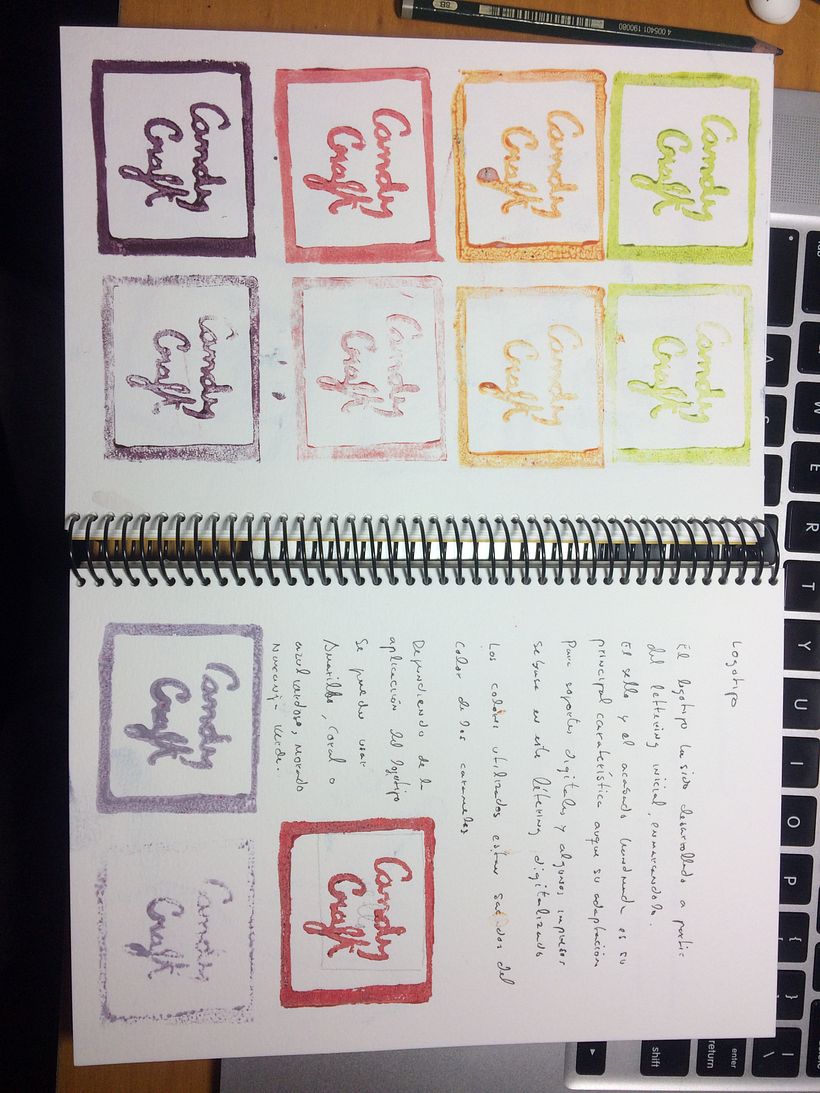 Candy
Craft
Candy
Craft
Candy
Craft
Candy
Craft
Candy
Craft
Candy
Craft
Candy
Craft
Candy
Craft
Logotipo
El logotipo ha sido desarrollado a partir
del lettering inicial, enmarcandola.
El sello y el acabado es su
principal caraterística auque su adaptación
Para soportes digitales y algunos impresos
se basa en este létering digitalizado
Los colores utilizados estan sacados del
color de los caramelos
Dependiendo de la
aplicación del logotipo
se puede usar
Amarillo, Coral o
azul verdoso, morado
Naranja verde.
Candy
Craft
Candy
Craft
Candy
Craft
4 005401 190080
8B
W
E
R
T
Y
U
I
O
P
{
[
}
]
|
\
A
enter
return
shift